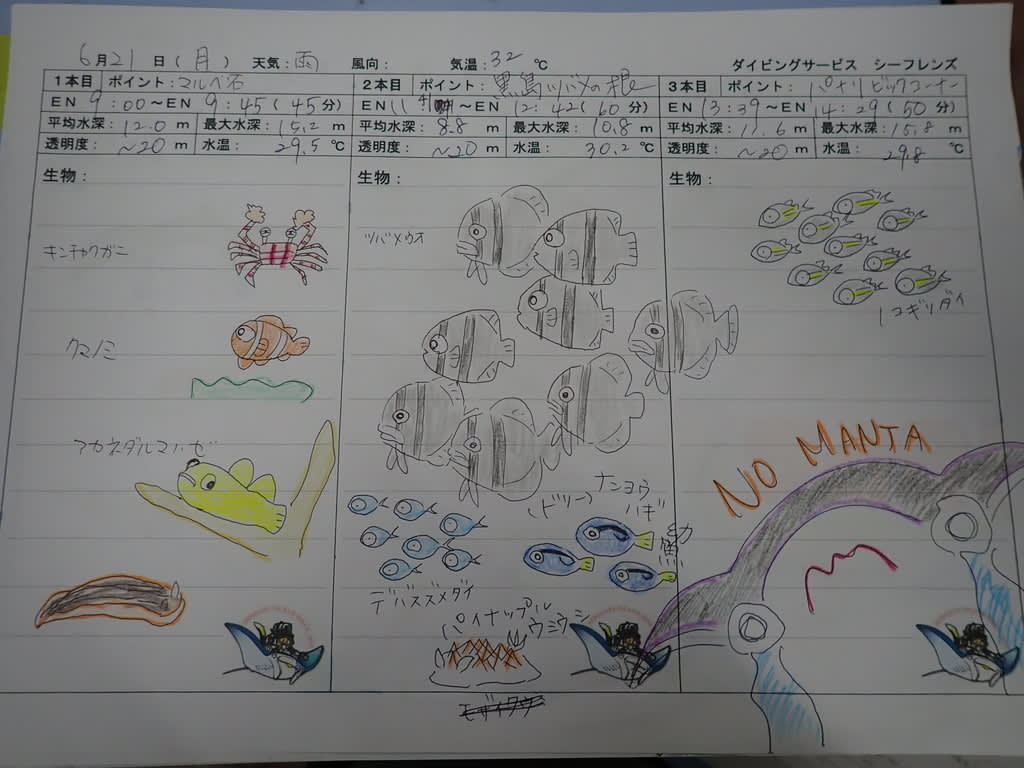 6月21日(月) 天気:雨 風向: 気温:32℃ ダイビングサービス シーフレンズ
1本目 ポイント:マルベ石
EN 9:00～EN 9:45(45分)
平均水深:12.0 m 最大水深:15.2 m
透明度:～20 m 水温:29.5℃
生物:
キンチャクガニ
クマノミ
アカネダルマハゼ
2本目 ポイント:黒島ツバメの根
EN 11:～EN 12:42(60分)
平均水深:8.8 m 最大水深:10.8 m
透明度:～20 m 水温:30.2℃
生物:
ツバメウオ
ナンヨウ
(ドリー) ハギ
幼魚
デバスズメダイ
パイナップル
ウミウシ
3本目 ポイント:パナリビックコーナー
EN 13:39～EN 14:29(50分)
平均水深:11.6 m 最大水深:15.8 m
透明度:～20 m 水温:29.8℃
生物:
ノコギリダイ
NO MANTA